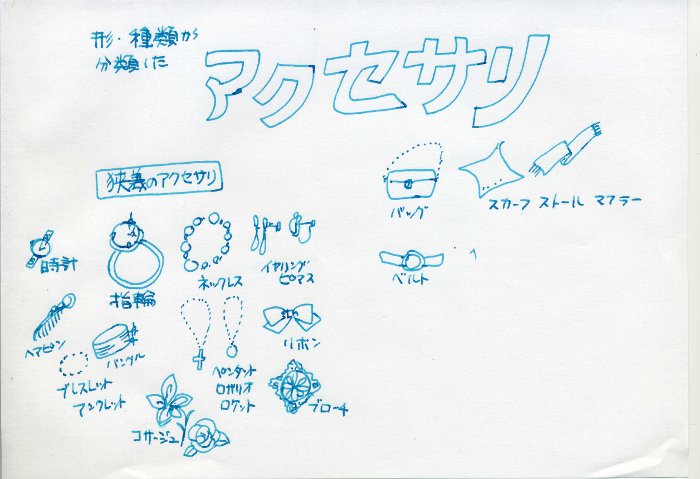 形・種類から
分類した
アクセサリ
狭義のアクセサリ
バッグ
スカーフ ストール マフラー
ベルト
時計
指輪
ネックレス
イヤリング
ピアス
ヘアピン
バングル
ブレスレット
アンクレット
ペンダント
ロザリオ
ロケット
リボン
ブローチ
コサージュ